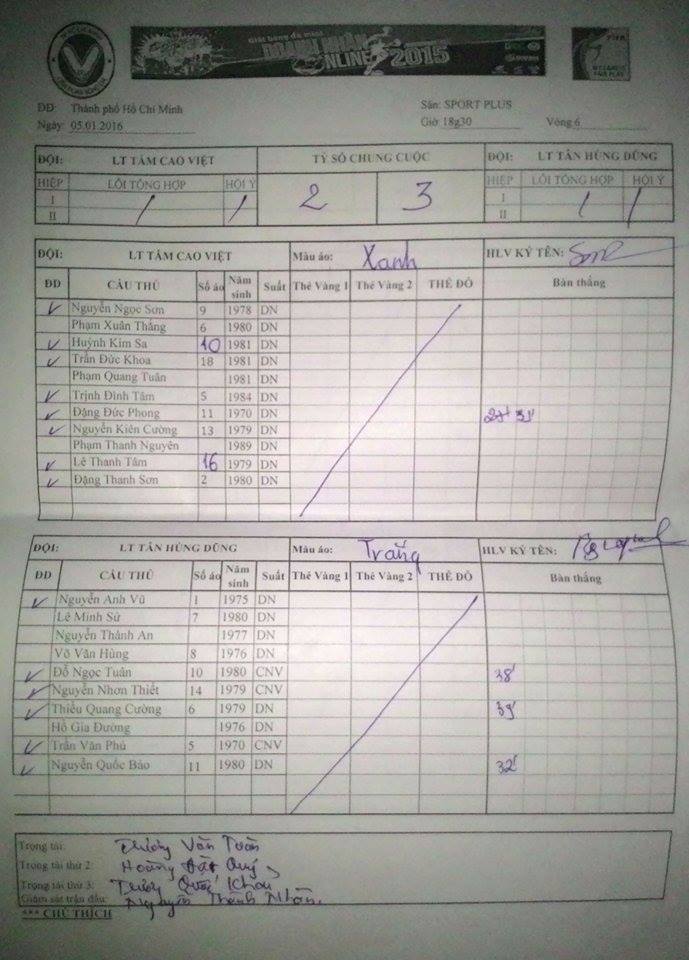 Giải bóng đá mini
DOANH NHÂN
ONLINE 2015
ĐĐ: Thành phố Hồ Chí Minh Sân: SPORT PLUS
Ngày: 05.01.2016 Giờ: 18g30 Vòng 6
ĐỘI: LT TÂM CAO VIỆT TỶ SỐ CHUNG CUỘC ĐỘI: LT TÂN HÙNG DŨNG
HIỆP LỖI TỔNG HỢP HỘI Ý 2 3 HIỆP LỖI TỔNG HỢP HỘI Ý
I I
II II
ĐỘI: LT TÂM CAO VIỆT Màu áo: Xanh HLV KÝ TÊN:
ĐD CẦU THỦ Số áo Năm sinh Suất Thẻ Vàng 1 Thẻ Vàng 2 THẺ ĐỎ Bàn thắng
✓ Nguyễn Ngọc Sơn 9 1978 DN
Phạm Xuân Thắng 6 1980 DN
✓ Huỳnh Kim Sa 10 1981 DN
✓ Trần Đức Khoa 18 1981 DN
Phạm Quang Tuân 1981 DN
✓ Trịnh Đình Tâm 5 1984 DN
✓ Đặng Đức Phong 11 1970 DN
✓ Nguyễn Kiên Cường 13 1979 DN
Phạm Thanh Nguyên 1989 DN
✓ Lê Thanh Tâm 16 1979 DN
✓ Đặng Thanh Sơn 2 1980 DN
ĐỘI: LT TÂN HÙNG DŨNG Màu áo: Trắng HLV KÝ TÊN:
ĐD CẦU THỦ Số áo Năm sinh Suất Thẻ Vàng 1 Thẻ Vàng 2 THẺ ĐỎ Bàn thắng
✓ Nguyễn Anh Vũ 1 1975 DN
Lê Minh Sử 7 1980 DN
Nguyễn Thánh An 1977 DN
Võ Văn Hùng 8 1976 DN
✓ Đỗ Ngọc Tuân 10 1980 CNV 38'
✓ Nguyễn Nhơn Thiết 14 1979 CNV
✓ Thiều Quang Cường 6 1979 DN 39'
Hồ Gia Đường 1976 DN
✓ Trần Văn Phú 5 1970 CNV
✓ Nguyễn Quốc Bảo 11 1980 DN 32'
Trọng tài: Văn Tuấn
Trọng tài thứ 2: Hoàng Quý
Trọng tài thứ 3: Quốc
Giám sát trận đấu: Nguyễn Thành Nhơn.
*** CHÚ THÍCH